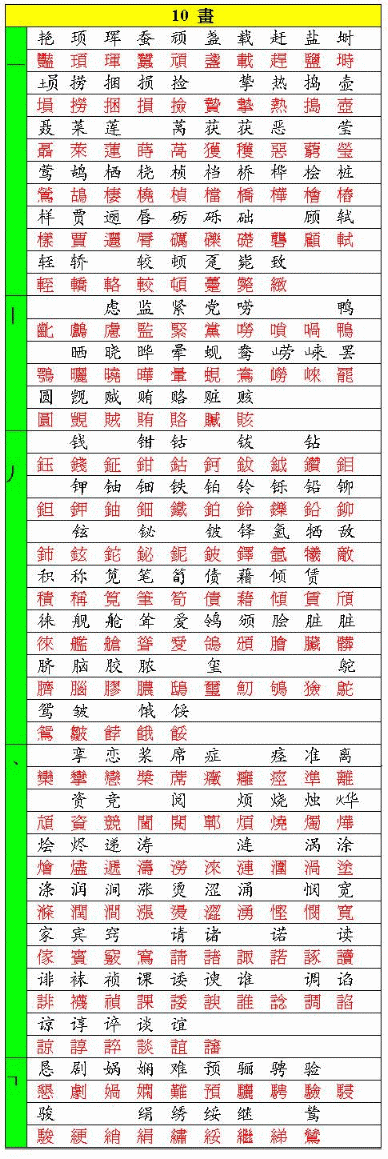 10 畫
艳 顼 珲 蚕 顽 盏 载 赶 盐 埘
一 豔 頊 琿 蠶 頑 盞 載 趕 鹽 塒
埙 捞 捆 损 捡 挚 热 捣 壶
塤 撈 捆 損 撿 贄 摯 熱 搗 壺
聂 莱 莲 莴 获 获 恶 莹
聶 萊 蓮 蒔 萵 獲 穫 惡 藭 瑩
莺 鸪 栖 桡 桢 档 桥 桦 桧 桩
鶯 鴣 棲 橈 楨 檔 橋 樺 檜 樁
样 贾 逦 唇 砺 砾 础 顾 轼
樣 賈 邐 脣 礪 礫 礎 礱 顧 軾
轾 轿 较 顿 趸 毙 致
輊 轎 輅 較 頓 躉 斃 緻
虑 监 紧 党 唠 鸭
丨 齔 鸕 慮 監 緊 黨 嘮 嗩 喎 鴨
晒 晓 晔 晕 蚬 鸯 崂 崃 罢
鶚 曬 曉 曄 暈 蜆 鴦 嶗 崍 罷
圆 觊 贼 贿 赂 赃 赅
圓 覬 賊 賄 賂 贓 賅
钱 钳 钴 钹 钻
丿 鈺 錢 鉦 鉗 鈷 鈳 鈸 鉞 鑽 鉬
钾 铀 钿 铁 铂 铃 铄 铅 铆
鉭 鉀 鈾 鈿 鐵 鉑 鈴 鑠 鉛 鉚
铉 铋 铍 铎 氩 牺 敌
鈰 鉉 鉈 鉍 鈮 鈹 鐸 氬 犧 敵
积 称 笕 笔 笋 债 藉 倾 赁
積 稱 筧 筆 筍 債 藉 傾 賃 頎
徕 舰 舱 耸 爱 鸰 颁 脍 脏 脏
徠 艦 艙 聳 愛 鴒 頒 膾 臟 髒
脐 脑 胶 脓 玺 鸵
臍 腦 膠 膿 鴟 璽 魛 鴝 獫 鴕
鸳 皱 饿 馁
鴛 皺 餑 餓 餒
挛 恋 桨 席 症 痉 准 离
丶 欒 攣 戀 槳 蓆 癥 癰 痙 準 離
资 竞 阅 烦 烧 烛 烨
頏 資 競 閫 閱 鄲 煩 燒 燭 燁
烩 烬 递 涛 涟 涡 涂
燴 燼 遞 濤 澇 淶 漣 潿 渦 塗
涤 润 涧 涨 烫 涩 涌 悯 宽
滌 潤 澗 漲 燙 澀 湧 慳 憫 寬
家 宾 窍 请 诸 诺 读
傢 賓 竅 窵 請 諸 諏 諾 諑 讀
诽 袜 祯 课 诿 谀 谁 调 谄
誹 襪 禎 課 諉 諛 誰 諗 調 諂
谅 谆 谇 谈 谊
諒 諄 誶 談 誼 讅
恳 剧 娲 娴 难 预 骊 骋 验
𠃍 懇 劇 媧 嫻 難 預 驪 騁 驗 駸
骏 绢 绣 绥 继 鸶
駿 綆 綃 絹 繡 綏 繼 綈 鷥